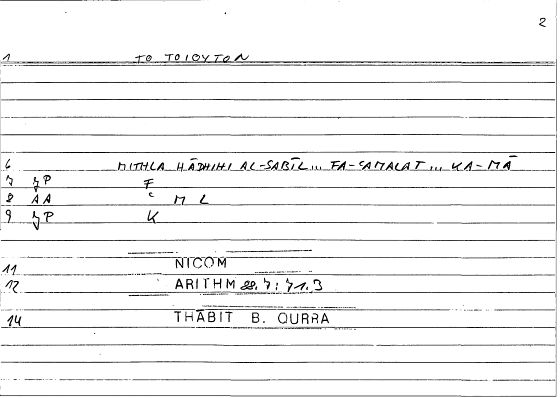 2
1 ΤΟ ΤΟΙΟΥΤΟΝ
6 MITHLA HĀDHIHI AL-SABĪL ... FA-SAMALAT ... KA-MĀ
7 jP F
8 AA c M L
9 jP K
11 NICOM
12 ARITHM 88.7: 71.3
14 THĀBIT B. QURRA